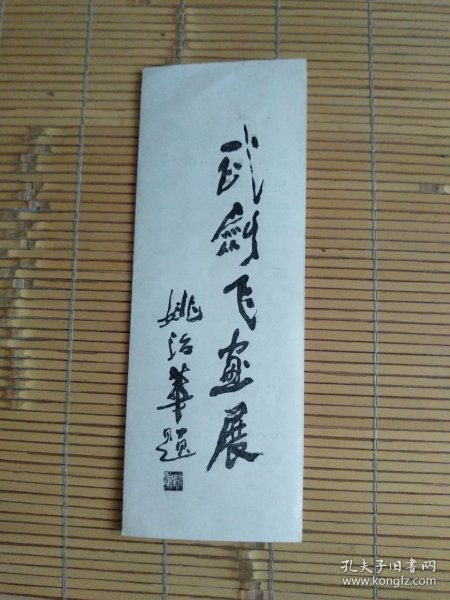 武剑飞画展
姚治华题
孔夫子旧书网
www.kongfz.com